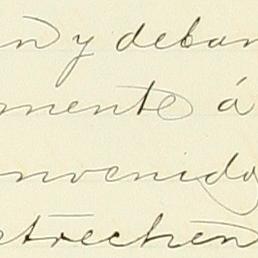 n y deban
mente á
nvenido
strechen